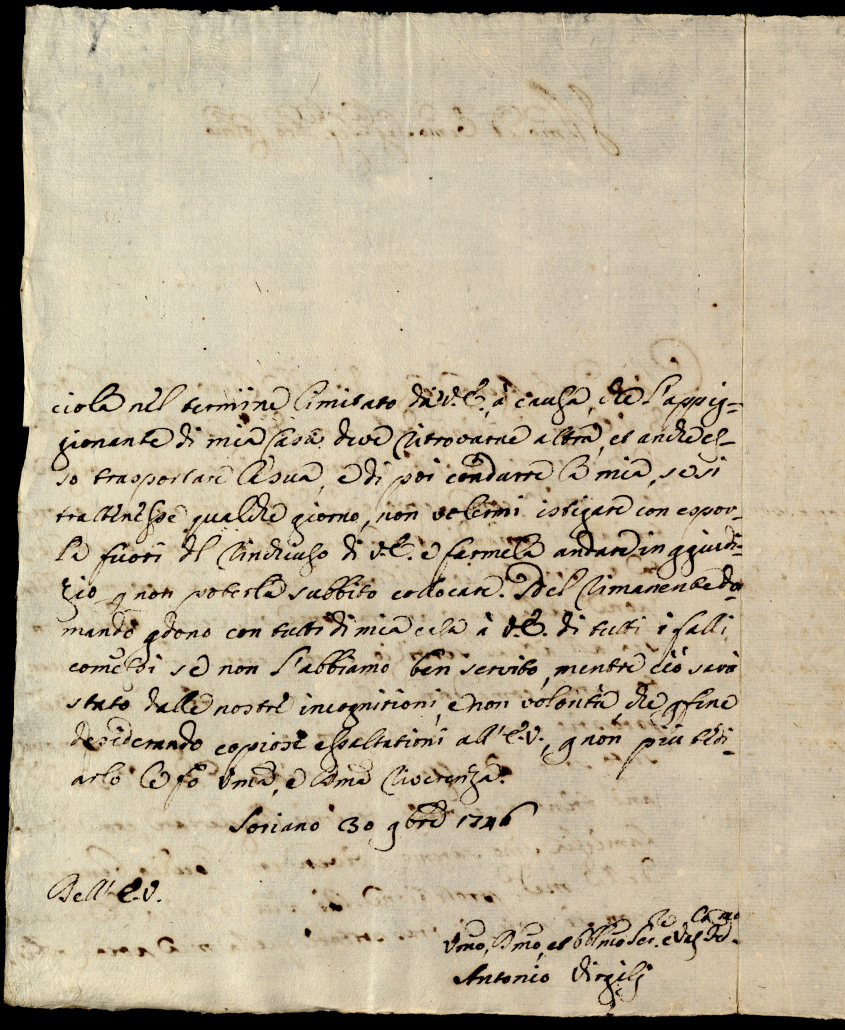 ciola nel termine limitato da V.E., à causa, che l'appig=
gionante di mia Casa deve ritrovarne altra, et anche es=
so trasportare la sua, e di poi condurre la mia, se si
trattenesse qualche giorno, non volermi istigare con espor=
la fuori del rindicuso di V.E. e farmela andare in pgiudi=
zio p non poterla subbito collocare. Del rimanente do=
mando pdono con tutti di mia casa à V.E. di tutti i falli
comessi se non l'abbiamo ben servito, mentre ciò sarà
stato dalle nostre incognitioni, e non volontà, che p fine
desiderando copiose esaltationi all'E.V., p non più tedi=
arlo le fò Uma, e Dma riverenza.
Soriano 30 9bre 1746
Dell'E.V.
Umo, Dmo, et Obbmo Ser.re e
Antonio Virgilj